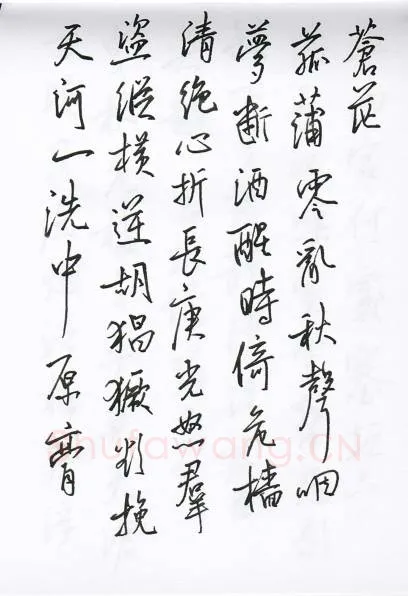 蒼茫
菰蒲零亂秋聲咽
夢斷酒醒時倚危檣
清絕心折長庚光怒羣
盜縱橫逆胡猖獗欲挽
天河一洗中原膏
Shufawang.CN